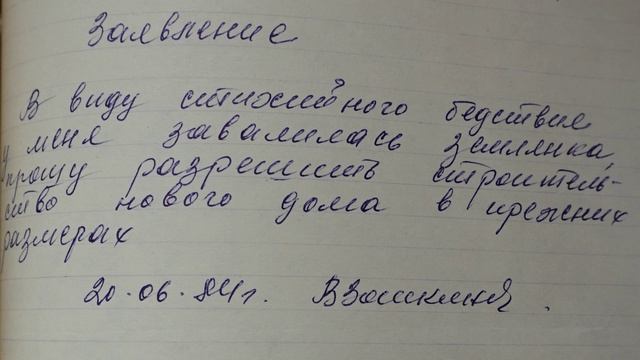 Заявление
В виду стихийного бедствие
у меня завалилась землянка,
прошу разрешить строитель-
ство нового дома в прежних
размерах
20.06.84г.